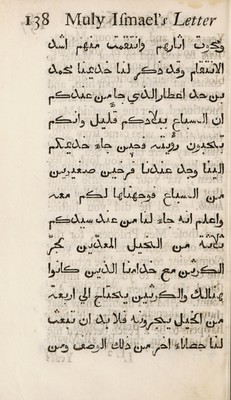 138 Muly Iſmael's Letter
ومحوت اثارهم وانتقمت منهم اشد
الانتقام وقد ذكر لنا خديمنا محمد
بن حد اعطار الذي جا من عندكم
ان السباع ببلادكم قليل وانكم
تحبون رؤيته فحين جاء خديمكم
الينا وجد عندنا فرخين صغيرين
من السباع فوجهناها لكم معه
واعلم انه جاء لنا من عند سيدكم
ثلاثة من الخيل المعدين لجر
الكرتين مع خدامنا الذين كانوا
هنالك والكرتين يحتاج الي اربعة
من الخيل يجرونه فلا بد ان تبعث
لنا حصانا اخر من ذلك الوصف ومن